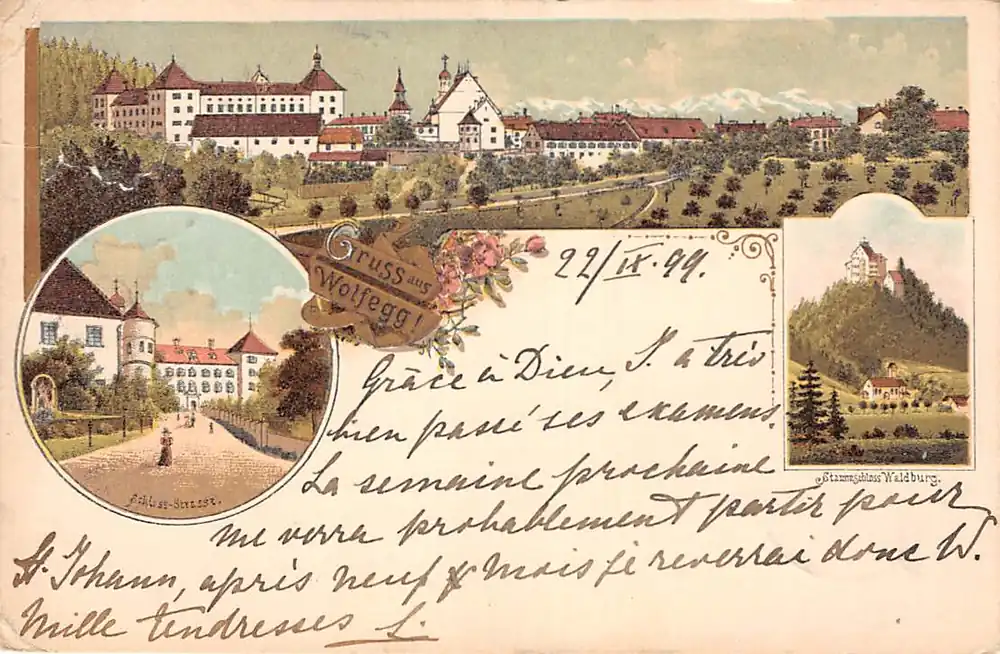 Gruss aus
Wolfegg!
22/IX. 99.
Grâce à Dieu, S. a très
bien passé ses examens.
La semaine prochaine
me verra probablement partir pour
St. Johann, après neuf mois je reverrai donc W.
Mille tendresses S.
Schloss-Strasse.
Stammschloss Waldburg.